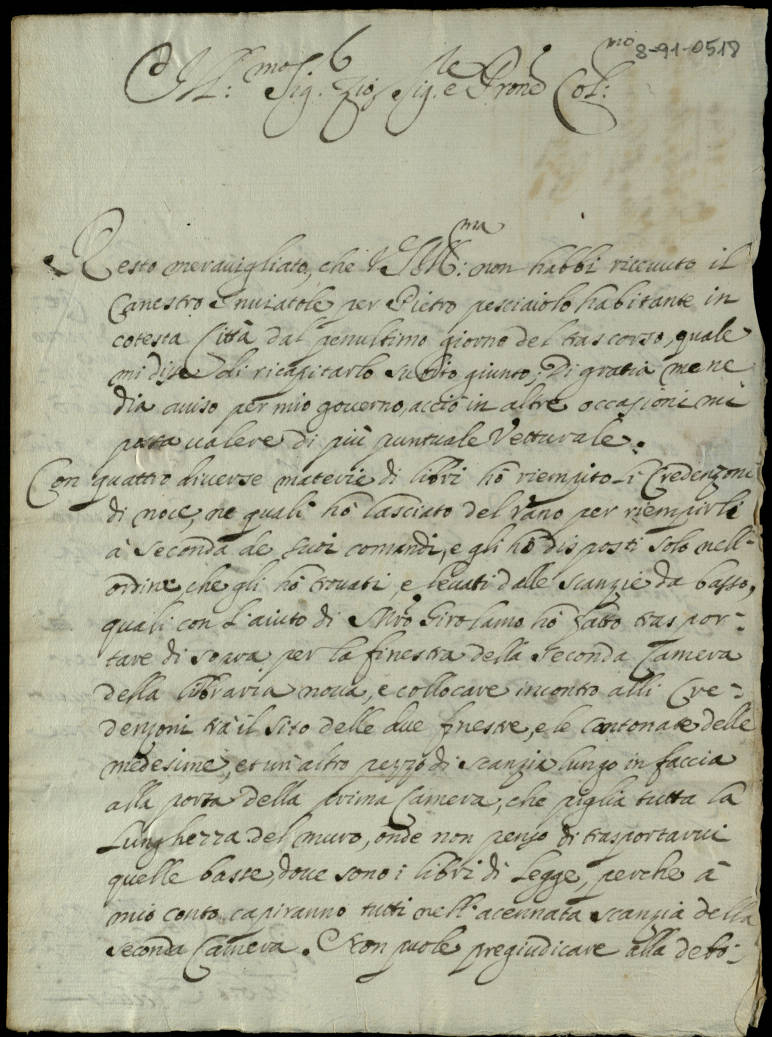 8-91-0518
Ill:mo Sig. Zio, Sig.e Prone Col:mo
Resto meravigliato, che V.S. Ill:ma non habbi ricevuto il
Canestro inviatole per Pietro pesciaiolo habitante in
cotesta Città dal penultimo giorno del trascorso, quale
mi disse di ricapitarlo subito giunto; Di gratia me ne
dia aviso per mio governo, acciò in altre occasioni mi
possa valere di più puntuale Vetturale.
Con quattro diverse materie di libri hò riempito i Credenzoni
di noce, ne quali hò lasciato del vano per riempirli
à seconda de suoi comandi, e gli hò disposti solo nell'
ordine, che gli hò trovati e levati dalle scanzie da basso,
quali con l'aiuto di Mro Girolamo hò fatto traspor-
tare di sopra per la finestra della seconda Camera
della libraria nova, e collocare incontro alli Cre-
denzoni trà il sito delle due finestre, e le cantonate delle
medesime, et un altro pezzo di scanzia lungo in faccia
alla porta della prima Camera, che piglia tutta la
lunghezza del muro, onde non penso di trasportarvi
quelle basse, dove sono i libri di legge, perche à
mio conto capiranno tutti nell'acennata scanzia della
seconda Camera. Non puole pregiudicare alla debo-